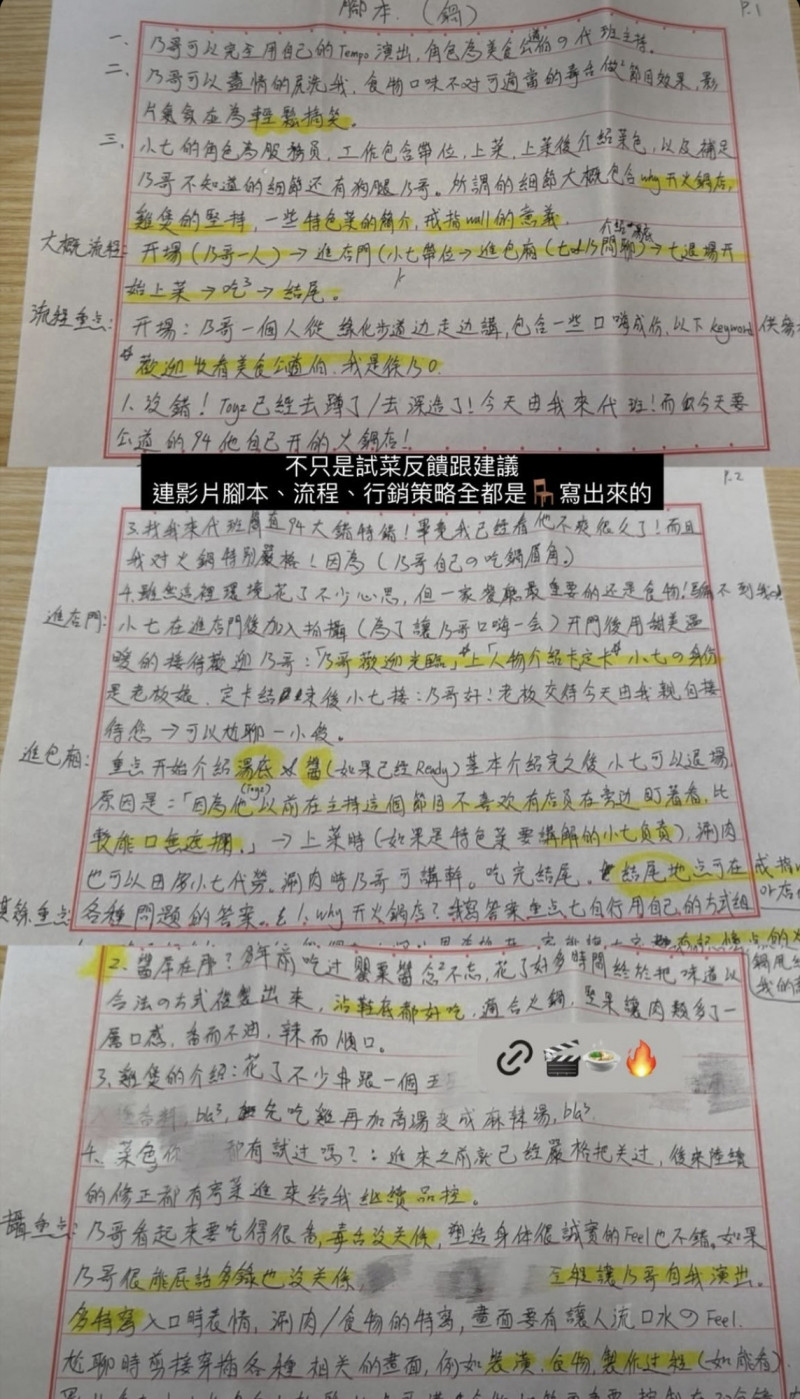 腳本.(鍋)
P.1
一、乃哥可以完全用自己的Tempo演出,角色為美食公道伯の代班主持。
二、乃哥可以盡情的屁洗我,食物口味不对可適當的毒舌做節目效果,影
片氣氛在為輕鬆搞笑。
三、小七的角色為服務員,工作包含帶位,上菜,上菜後介紹菜色,以及補足
乃哥不知道的細節还有狗腿乃哥。所謂的細節大概包含why开火鍋店,
雞煲的堅持,一些特色菜的簡介,戒指wall的意義。
大概流程:开場(乃哥一人)→進店門(小七帶位→進包廂(七&乃閒聊)→七退場开
介紹
始上菜→吃³→結尾。
流程重点:开場:乃哥一個人從綠化步道边走边講,包含一些口嗨成份,以下keyword供參
*歡迎收看美食公道伯,我是徐乃0.
1.沒錯!Toyz已經去蹲了/去深造了!今天由我來代班!而且今天要
公道的94他自己开的火鍋店!
不只是試菜反饋跟建議
連影片腳本、流程、行銷策略全都是🪑寫出來的
P.2
3.找我來代班簡直94大錯特錯!畢竟我已經看他不爽很久了!而且
我对火鍋特別嚴格!因為(乃哥自己の吃鍋眉角。)
4.雖然這裡環境花了不少心思,但一家餐廳最重要的还是食物!騙不到我
進店門:小七在進店門後加入拍攝(為了讓乃哥口嗨一会)开門後用甜美溫
暖的接待歡迎乃哥:「乃哥歡迎光臨」*上「人物介紹卡定卡*小七の身份
是老板娘,定卡結束後小七接:乃哥好!老板交待今天由我親自接
待您→可以尬聊一小段。
進包廂:重点开始介紹湯底&醬(如果已經Ready)基本介紹完之後小七可以退場
原因是:「因為他以前在主持這個節目不喜欢有店員在旁边盯着看,比
(Toyz)
較能口無遮攔。」→上菜時(如果是特色菜要講解的小七負責),涮肉
也可以由小七代勞。涮肉時乃哥可講幹。吃完結尾。結尾地点可在戒指
or店
其餘重点:各種問題的答案。1.why开火鍋店?我寫答案重点七自行用自己的方式組
2.醬厚在序?多年前吃过罌粟醬念²不忘,花了好多時間終於把味道以
合法の方式復製出來,沾鞋底都好吃,適合火鍋,堅果讓肉類多了一
層口感,香而不油,辣而順口。
🔗🎬🍲🔥
3.雞煲的介紹:花了不少 跟一個
bla³,先吃雞再加高湯变成麻辣湯,bla³.
4.菜色你 都有試过嗎?:進來之前就已經嚴格把关过,後來陸續
的修正都有 進來給我继續品控。
攝重点:乃哥看起來要吃得很香,毒舌沒关係,塑造身体很誠實的Feel也不錯,如果
乃哥很能屁話多錄也沒关係, 全程讓乃哥自我演出。
多特寫入口時表情,涮肉/食物的特寫,畫面要有讓人流口水のFeel.
尬聊時剪接穿插各種相关的畫面,例如裝潢,食物,製作过程(如能看)